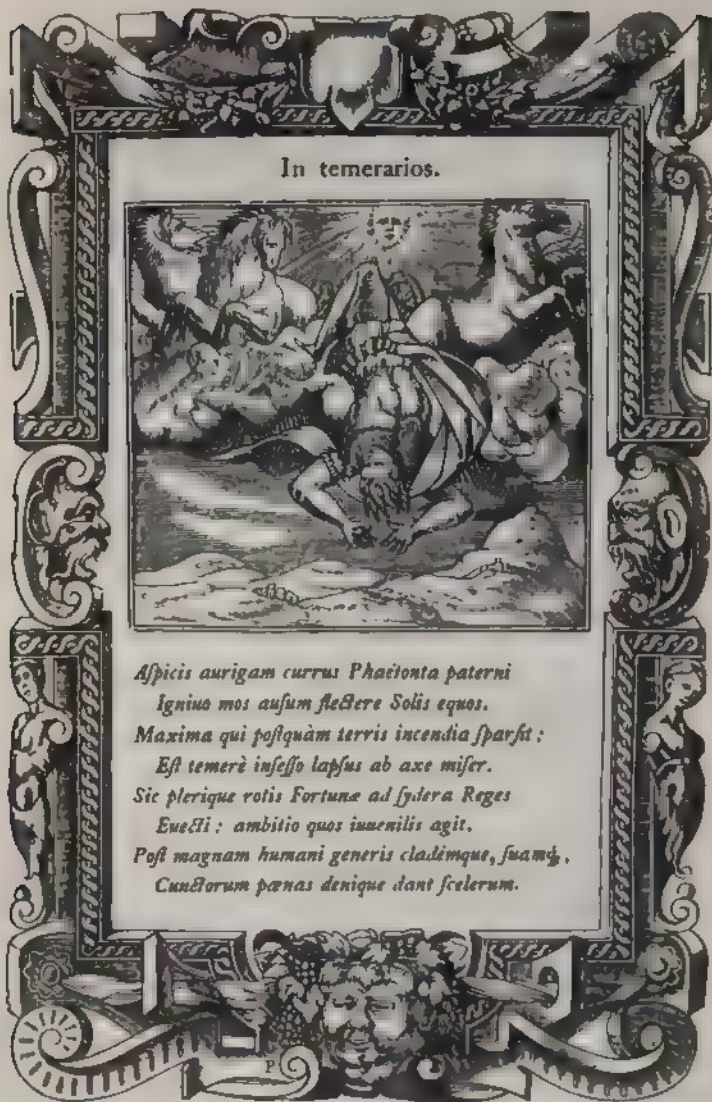 In temerarios.
Aſpicis aurigam currus Phaëtonta paterni
Igniuo mos auſum flectere Solis equos.
Maxima qui poſtquàm terris incendia ſparſit:
Eſt temerè inſeſſo lapſus ab axe miſer.
Sic plerique rotis Fortunæ ad ſydera Reges
Euecti: ambitio quos iuuenilis agit.
Poſt magnam humani generis cladémque, ſuamq́;,
Cunctorum pœnas denique dant ſcelerum.
P